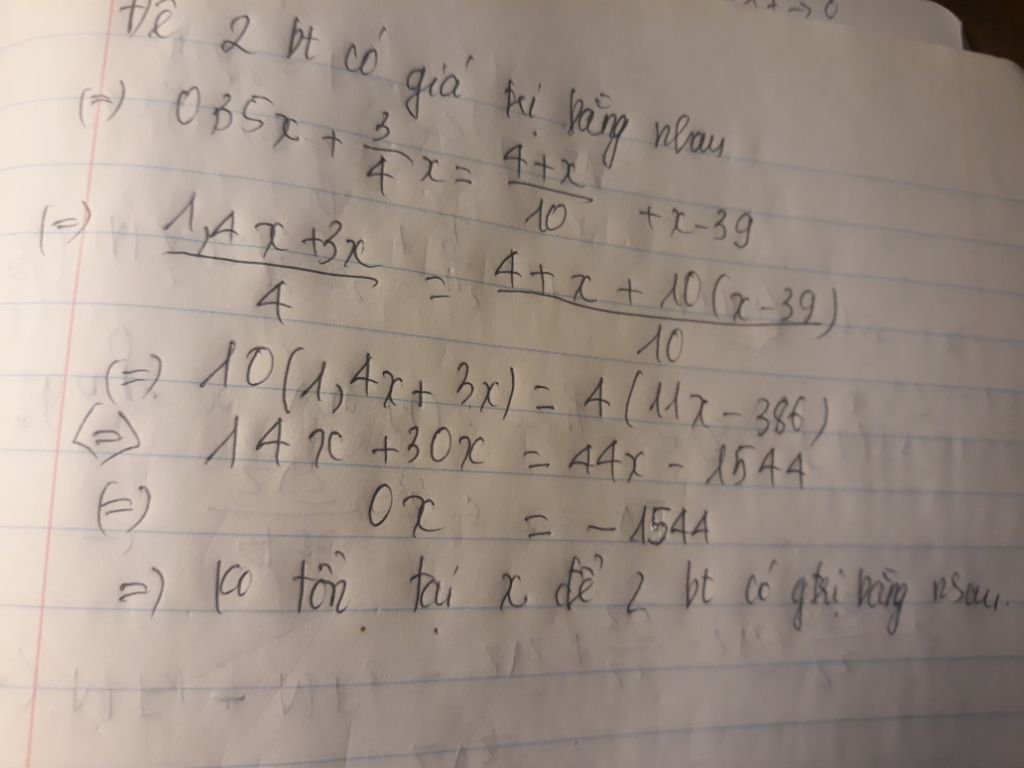 Để 2 bt có giá trị bằng nhau
(=) 0,35x + 3/4 x = 4+x/10 + x-39
(=) 1,4x+3x/4 = 4+x+10(x-39)/10
(=) 10(1,4x+3x) = 4(11x-386)
<=> 14x +30x = 44x - 1544
(=) 0x = -1544
=) ko tồn tại x để 2 bt có gtrị bằng nhau.